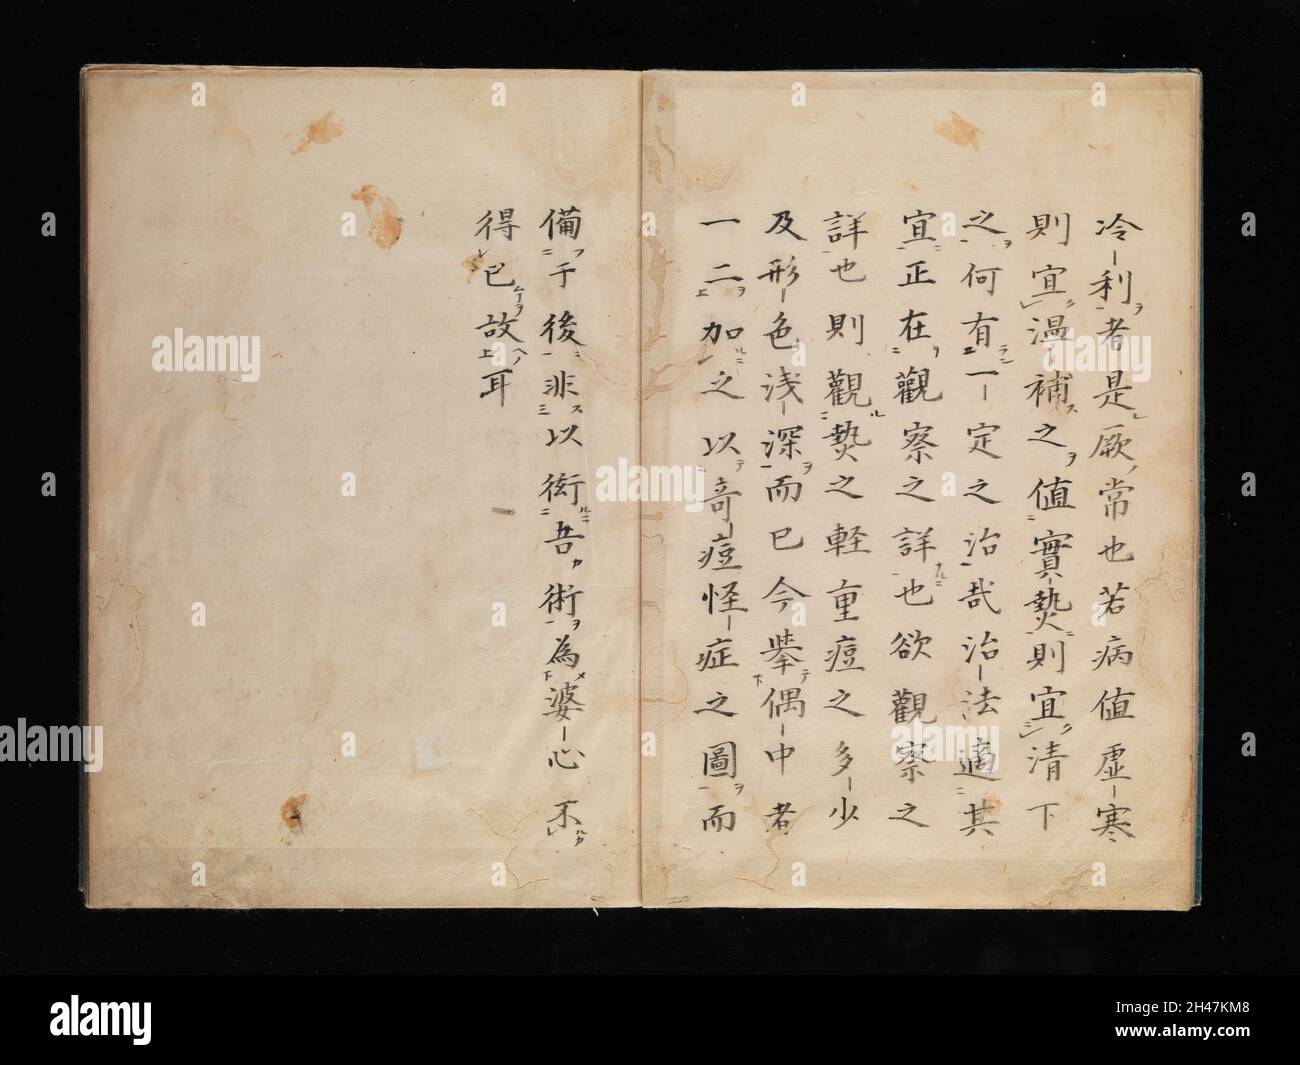 冷利者是厥常也若病値虚寒
則宜温補之値實𤍠則宜清下
之何有一定之治哉治法適其
宜正在觀察之詳也欲觀察之
詳也則觀𤍠之軽重痘之多少
及形色浅深而已今挙偶中者
一二加之以竒痘怪症之圖而
備于後非以衒吾術為婆心不
得已故耳
alamy
Image ID: 2H47KM8
www.alamy.com